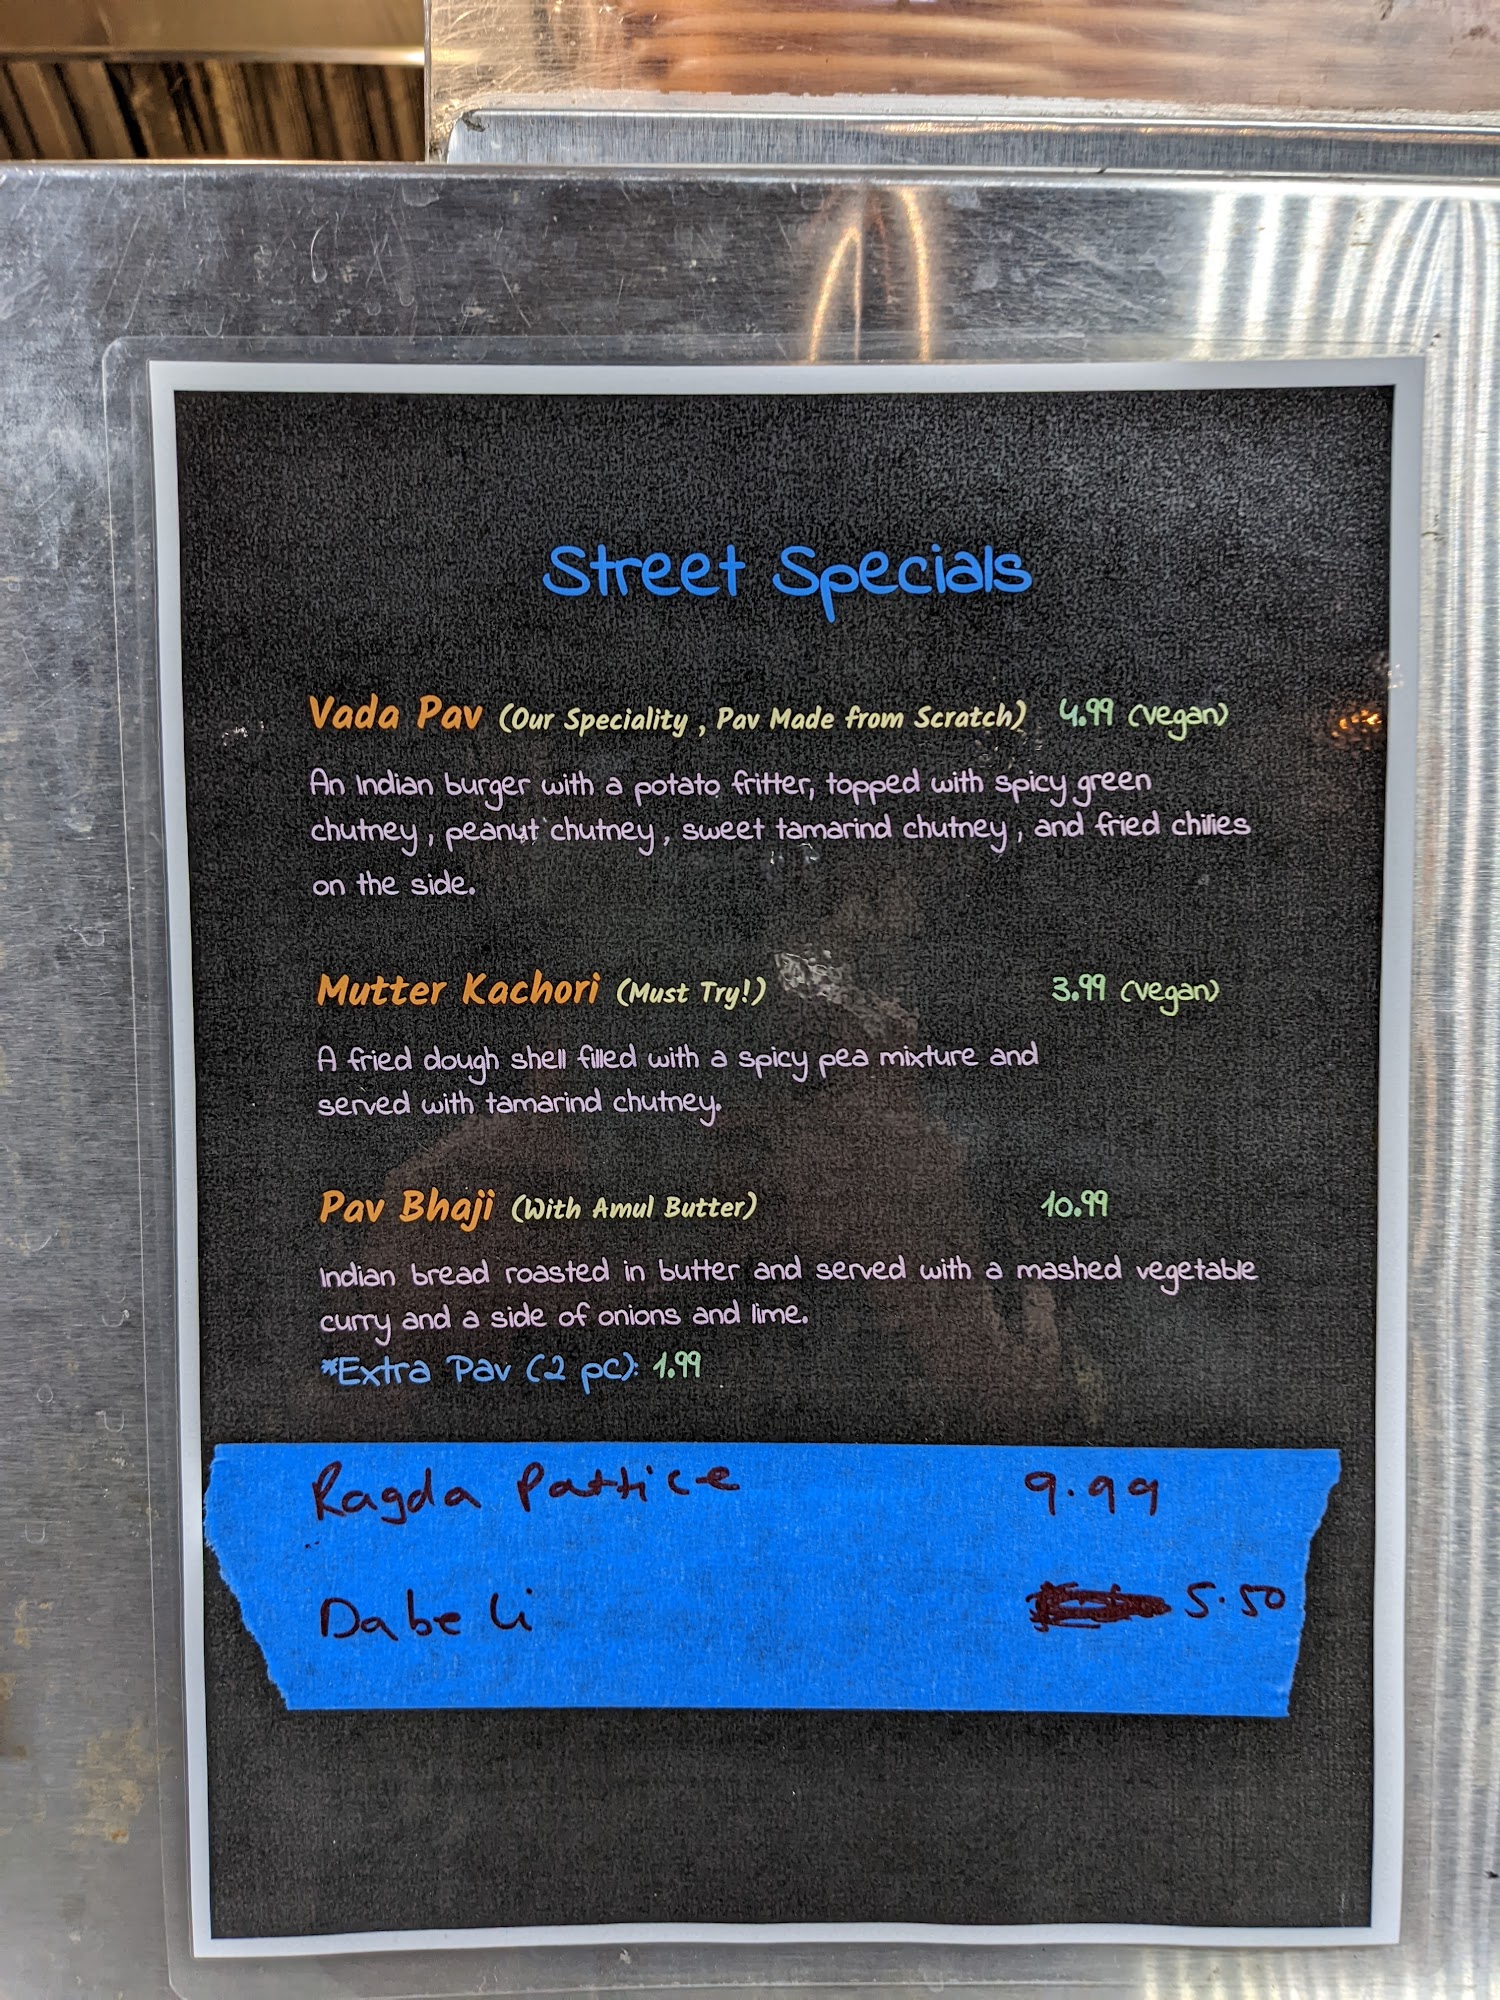 Street Specials
Vada Pav (Our Speciality , Pav Made from Scratch) 4.99 (vegan)
An Indian burger with a potato fritter, topped with spicy green
chutney , peanut chutney , sweet tamarind chutney , and fried chilies
on the side.
Mutter Kachori (Must Try!) 3.99 (vegan)
A fried dough shell filled with a spicy pea mixture and
served with tamarind chutney.
Pav Bhaji (With Amul Butter) 10.99
Indian bread roasted in butter and served with a mashed vegetable
curry and a side of onions and lime.
*Extra Pav (2 pc): 1.99
Ragda Pattice 9.99
Dabeli 5.50